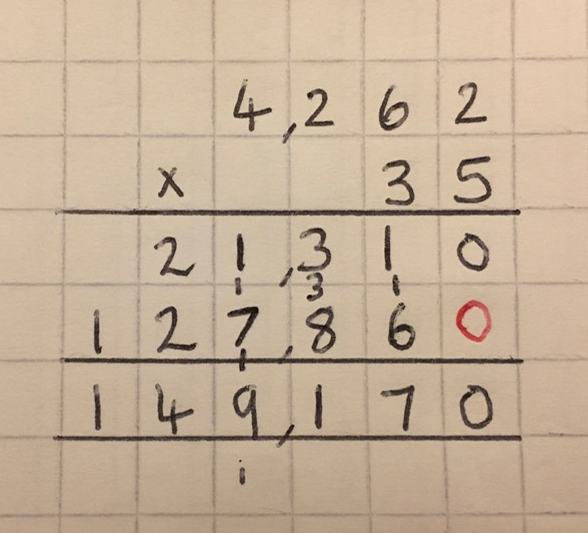 4,262
x 35
21,310
1 3 1
127,860
1
149,170
1